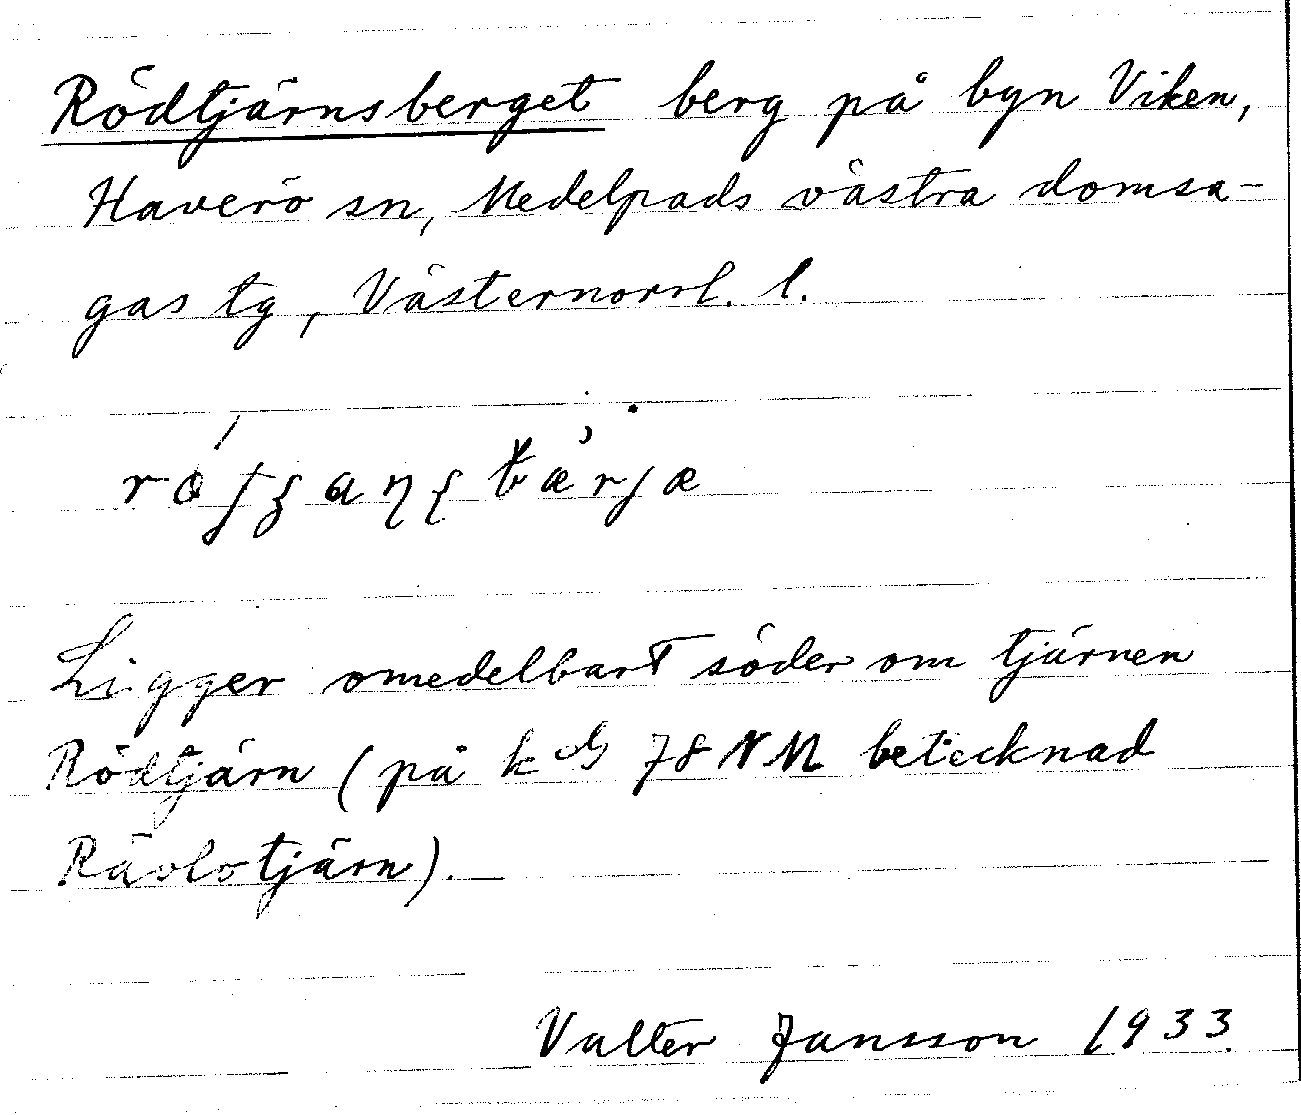 Rödtjärnsberget berg på byn Viken,
Haverö sn, Medelpads västra domsa-
gas tg, Västernorrl. l.
Ligger omedelbart söder om tjärnen
Rödtjärn (på kbl 78 NM betecknad
Rävlotjärn).
Valter Jansson 1933.